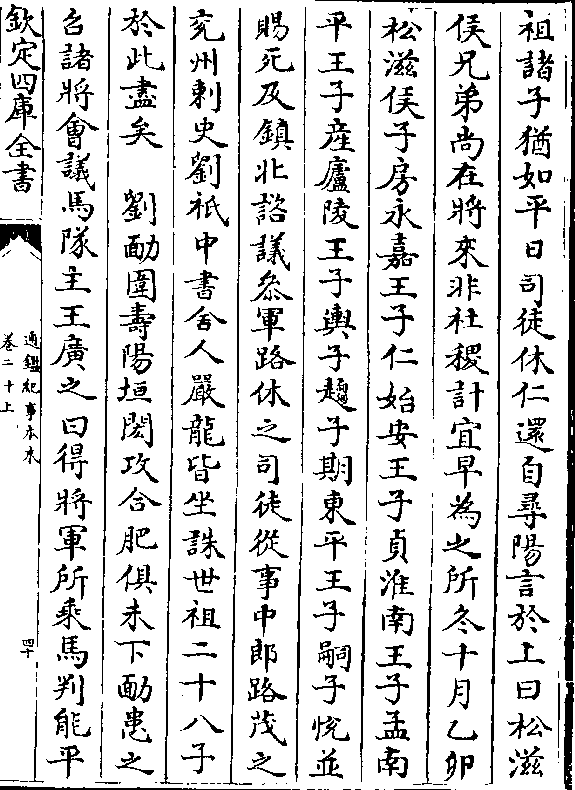 祖諸子猶如平日司徒休仁還自尋陽言於上曰松滋
侯兄弟尚在將來非社稷計宜早為之所冬十月乙卯
松滋侯子房永嘉王子仁始安王子貞淮南王子孟南
平王子産廬陵王子輿子趨子期東平王子嗣子悅並
賜死及鎮北諮議參軍路休之司徒從事中郎路茂之
兖州刺史劉祗中書舍人嚴龍皆坐誅世祖二十八子
於此盡矣　劉勔圍壽陽垣閎攻合肥俱未下勔患之
召諸將會議馬隊主王廣之曰得將軍所乘馬判能平
欽定四庫全書
通鑑紀事本末
卷二十上
四十